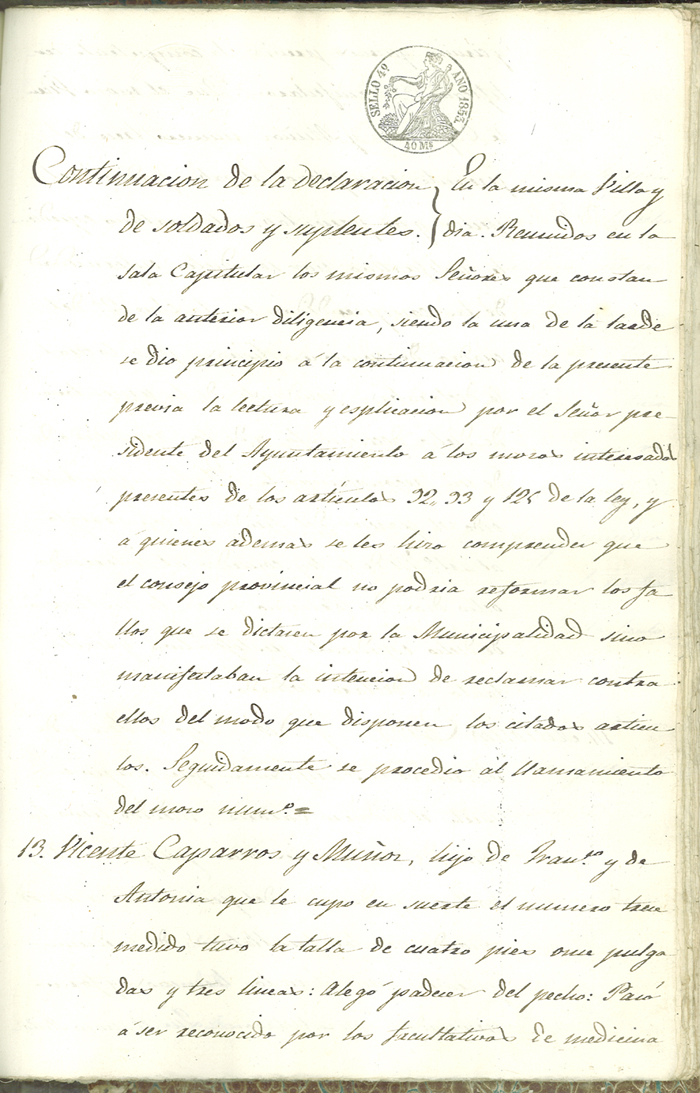 SELLO 4º AÑO 1853.
40 Ms
Continuacion de la declaracion } En la misma Villa y
de soldados y suplentes. } dia. Reunidos en la
sala Capitular los mismos Señores que constan
de la anterior diligencia, siendo la una de la tarde
se dio principio á la continuacion de la presente
previa la lectura y esplicacion por el Señor pre-
sidente del Ayuntamiento á los mozos interesados
presentes de los artículos 92, 93 y 125 de la ley, y
á quienes ademas se les hizo comprender que
el consejo provincial no podria reformar los fa
llos que se dictasen por la Municipalidad sino
manifestaban la intencion de reclamar contra
ellos del modo que disponen los citados articu
los. Seguidamente se procedio al llamamiento
del mozo numº. =
13. Vicente Caparros y Muñoz, hijo de Franco y de
Antonia que le cupo en suerte el numero trece
medido tuvo la talla de cuatro pies once pulga
das y tres lineas: Alegó padecer del pecho: Pasó
á ser reconocido por los facultativos de medicina